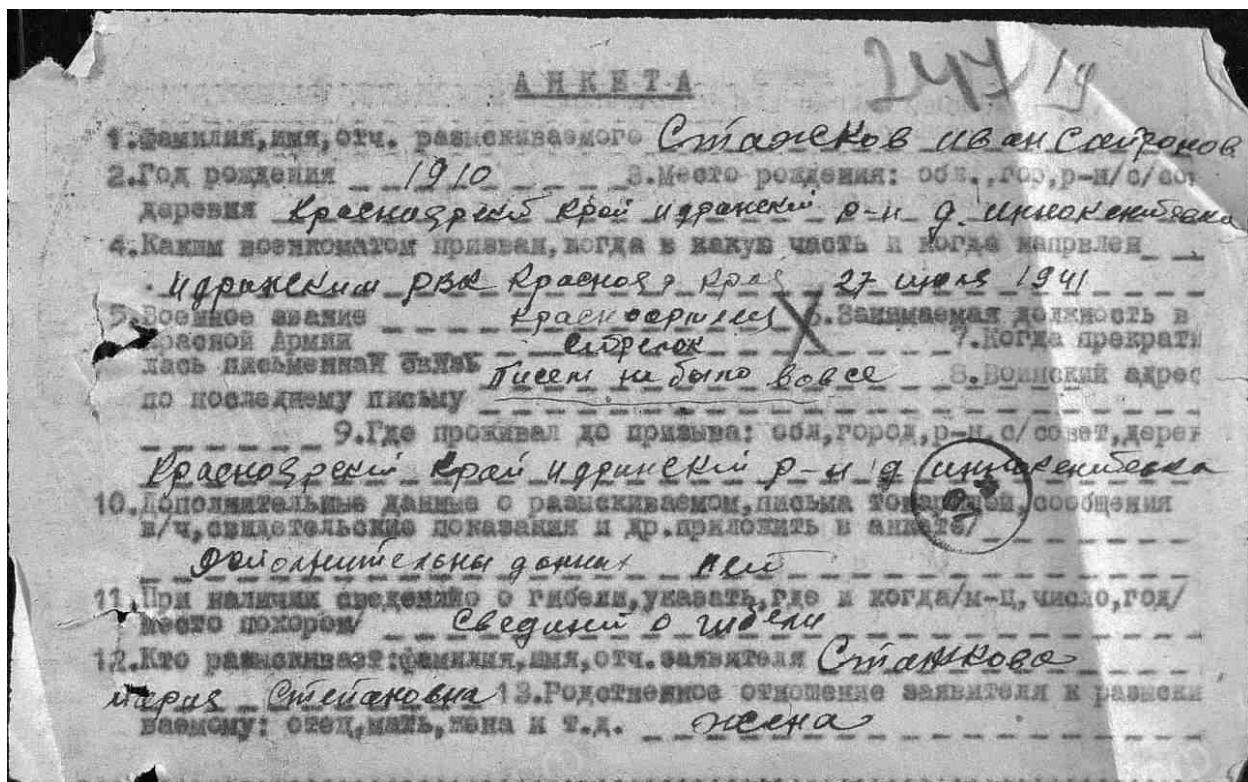 247 19
АНКЕТА
1.Фамилия,имя,отч. разыскиваемого Стажков иван Сафронов
2.Год рождения 1910 3.Место рождения: обл.,гор,р-н/с/сов
деревня Красноярский край идринский р-н д. иннокентьевка
4.Каким военкоматом призван,когда в какую часть и когда напрвлен
идринским РВК Красноя р края 27 июля 1941
5.Военное звание красноармеец 6.Занимаемая должность в
Красной Армии стрелок 7.Когда прекрати
лась письменная связь Писем не было вовсе 8.Воинский адрес
по последнему письму
9.Где проживал до призыва: обл,город,р-н,с/совет,дерев
Красноярский край идринский р-н д иннокентьевка
10.Дополнительные данные о разыскиваемом,письма товарищей,сообщения
в/ч,свидетельские показания и др.приложить в анкете/
дополнительны данных нет
11.При наличии сведенийо о гибели,указать,где и когда/м-ц,число,год/
место похорон/ Сведений о гибели
12.Кто разыскивает:фамилия,имя,отч.заявителя Стажкова
мария Степановна 13.Родственное отношение заявителя к разыски
ваемому: отец,мать,жена и т.д. жена